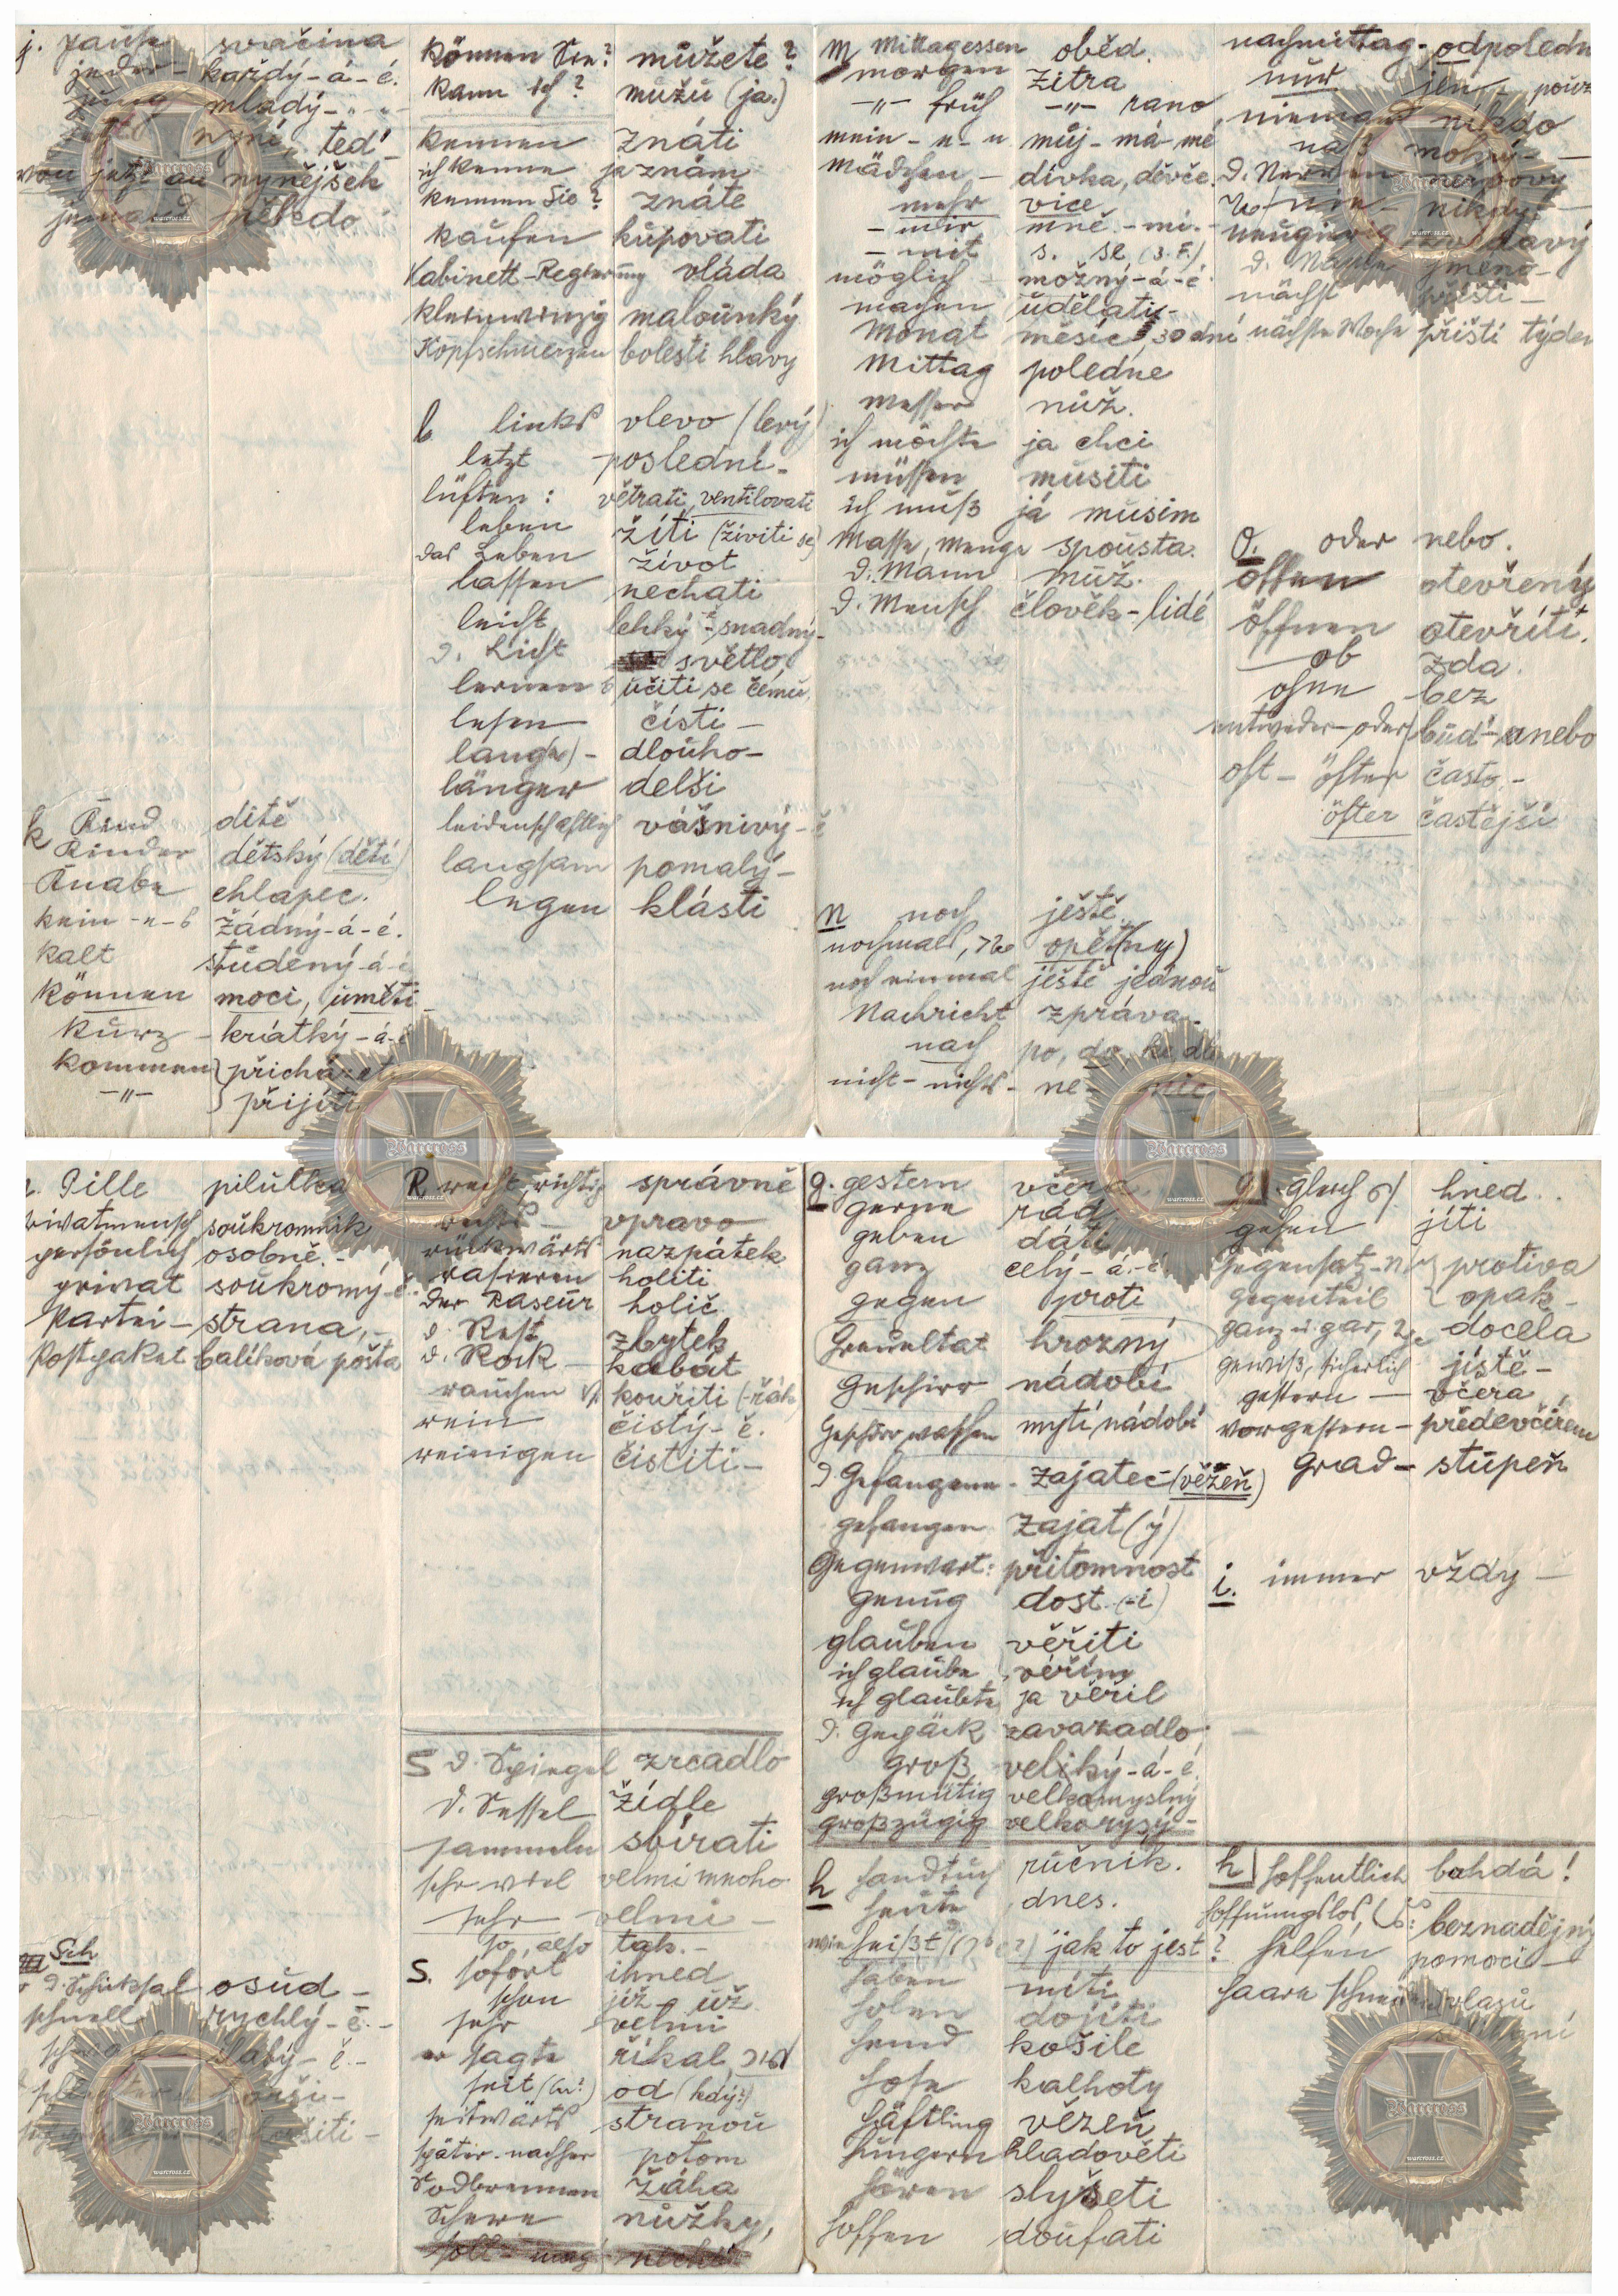 j. Jause svačina
jeder - každý-á-é.
jung mladý-„-„
nyní, teď
von jetzt an nynějšek
jemand někdo
k Kind dítě
Kinder dětský (děti)
Knabe chlapec.
kein -e-s žádný-á-é.
kalt studený-á-é
können moci, uměti
kurz - krátký-á-é
kommen } přicházet
-„- } přijíti
Können Sie? můžete?
kann ich? můžu (ja.)
kennen znáti
ich kenne ja znám
kennen Sie? znáte
kaufen kupovati
Kabinett-Regierung vláda
kleinwinzig malounký
Kopfschmerzen bolesti hlavy
l links vlevo (levý)
letzt poslední-
lüften: větrati, ventilovati
leben žíti (živiti se)
das Leben život
lassen nechati
leicht lehký-snadný-
d. Licht světlo,
lernen učiti se čemu.
lesen čísti-
lang(e)- dlouho-
länger delši
leidenschaftlich vášnivý-é
langsam pomalý-
legen klásti
M Mittagessen oběd.
morgen zitra
-„- früh -„- rano
mein-e-s můj-má-mé
Mädchen - divka, děvče.
mehr více
-mir mně.-mi.-
-mit s. se (3.F.)
möglich možný-á-é
machen udělati-
Monat měsíc, 30 dní
Mittag poledne
Messer nůž.
ich möchte ja chci
müssen musiti
ich muß já musim
Masse, Menge spousta.
d. Mann muž.
d. Mensch člověk-lidé
n noch ještě.
nochmals, opět(ny)
noch einmal ještě jednou
Nachricht zpráva.
nach po, do, ke
nicht-nichts- ne- nic
nachmittag- odpoledn
nur jen-, pouz
niemand nikdo
naß mokrý-
d. Nerven nervovy
nie- nikdy
neugierig
d. Name jmeno-
nächst příští-
nächste Woche příští týden
o. oder nebo.
offen otevřený
öffnen otevříti.
ob zda.
ohne bez
entweder-oder buď-anebo
oft-öfter často,-
öfter častější
Pille pilulka
Privatmensch soukromnik
persönlich osobně.-
privat soukromý-é.
Partei- strana,-
Postpaket balíková pošta
Sch
d. Schicksal osud-
schnell rychlý-é-
R recht, richtig správně
rechts- vpravo
rückwärts nazpátek
rasieren holiti
der Raseur holič
d. Rest zbytek
d. Rock- kabát
rauchen kouřiti
rein čistý-é.
reinigen čistiti-
S d. Spiegel zrcadlo
d. Sessel žídle
sammeln sbírati
sehr viel velmi mnoho
sehr velmi-
so, also tak.-
S. sofort ihned
schon již-už
sehr velmi
er sagte říkal
seit od (kdy?)
seitwärts stranou
später-nachher potom
Sodbrennen žáha
Schere nůžky,
g. gestern včera
gerne rád
geben dáti
ganz celý-á-é
gegen proti
hrozný
Geschirr nádobí
Geschirr waschen mytí nádobí
d Gefangene- zajatec-(vězeň)
gefangen zajat(ý)
Gegenwart: přitomnost
genug dost (-i)
glauben věřiti
ich glaube věřím
ich glaubte ja věřil
d. Gepäck zavazadlo
groß veliký-á-é.
großmütig velkomyslný
großzügig velkorysý-
h Handtuch ručnik.
heute dnes.
wie heißt jak to jest?
haben míti
holen dojíti
Hemd košile
Hose kalhoty
Häftling vězeň
hungern hladověti
hören slyšeti
hoffen doufati
g. gleich hned..
gehen jíti
Gegensatz- } protiva
Gegenteil } opak-
ganz u gar, docela
gewiß, sicherlich jistě-
gestern- včera
vorgestern- předevčírem
Grad- stupeň
i. immer vždy-
h hoffentlich bohdá!
hoffnungslos, beznadějný
helfen pomoci-
Haare schneiden vlasů